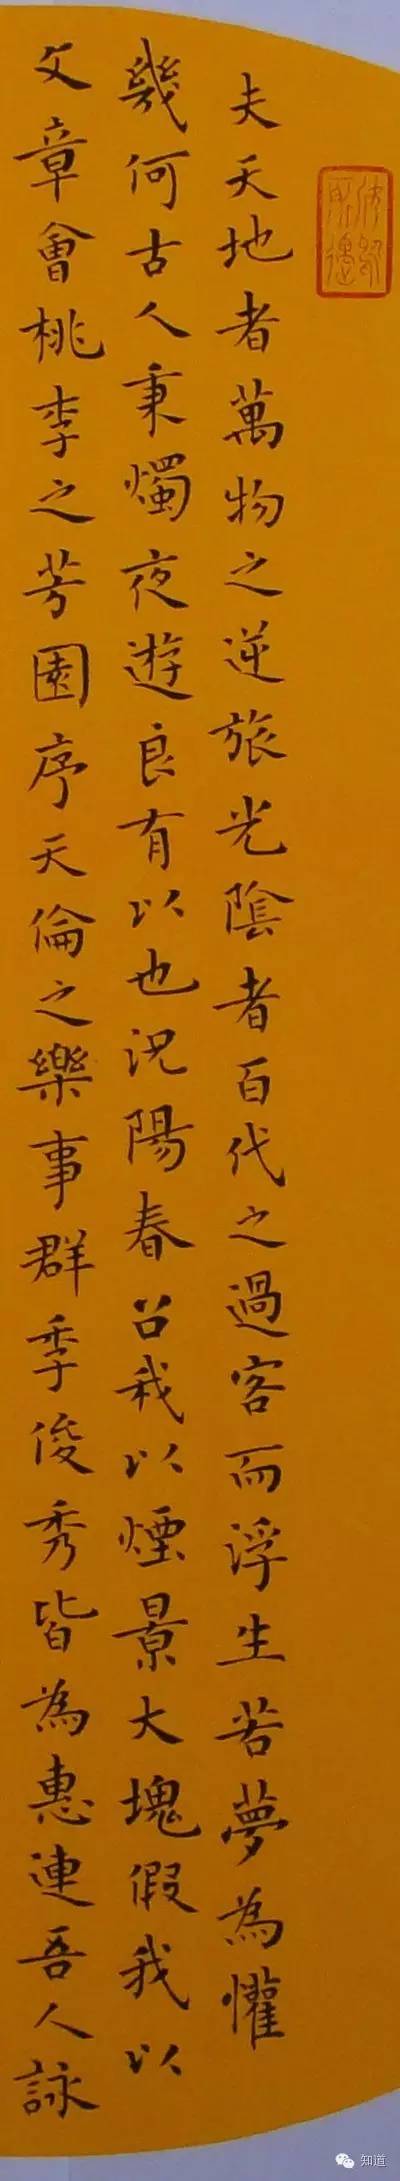 夫天地者萬物之逆旅光陰者百代之過客而浮生若夢為懽
幾何古人秉燭夜遊良有以也況陽春召我以煙景大塊假我以
文章會桃李之芳園序天倫之樂事群季俊秀皆為惠連吾人詠
知道